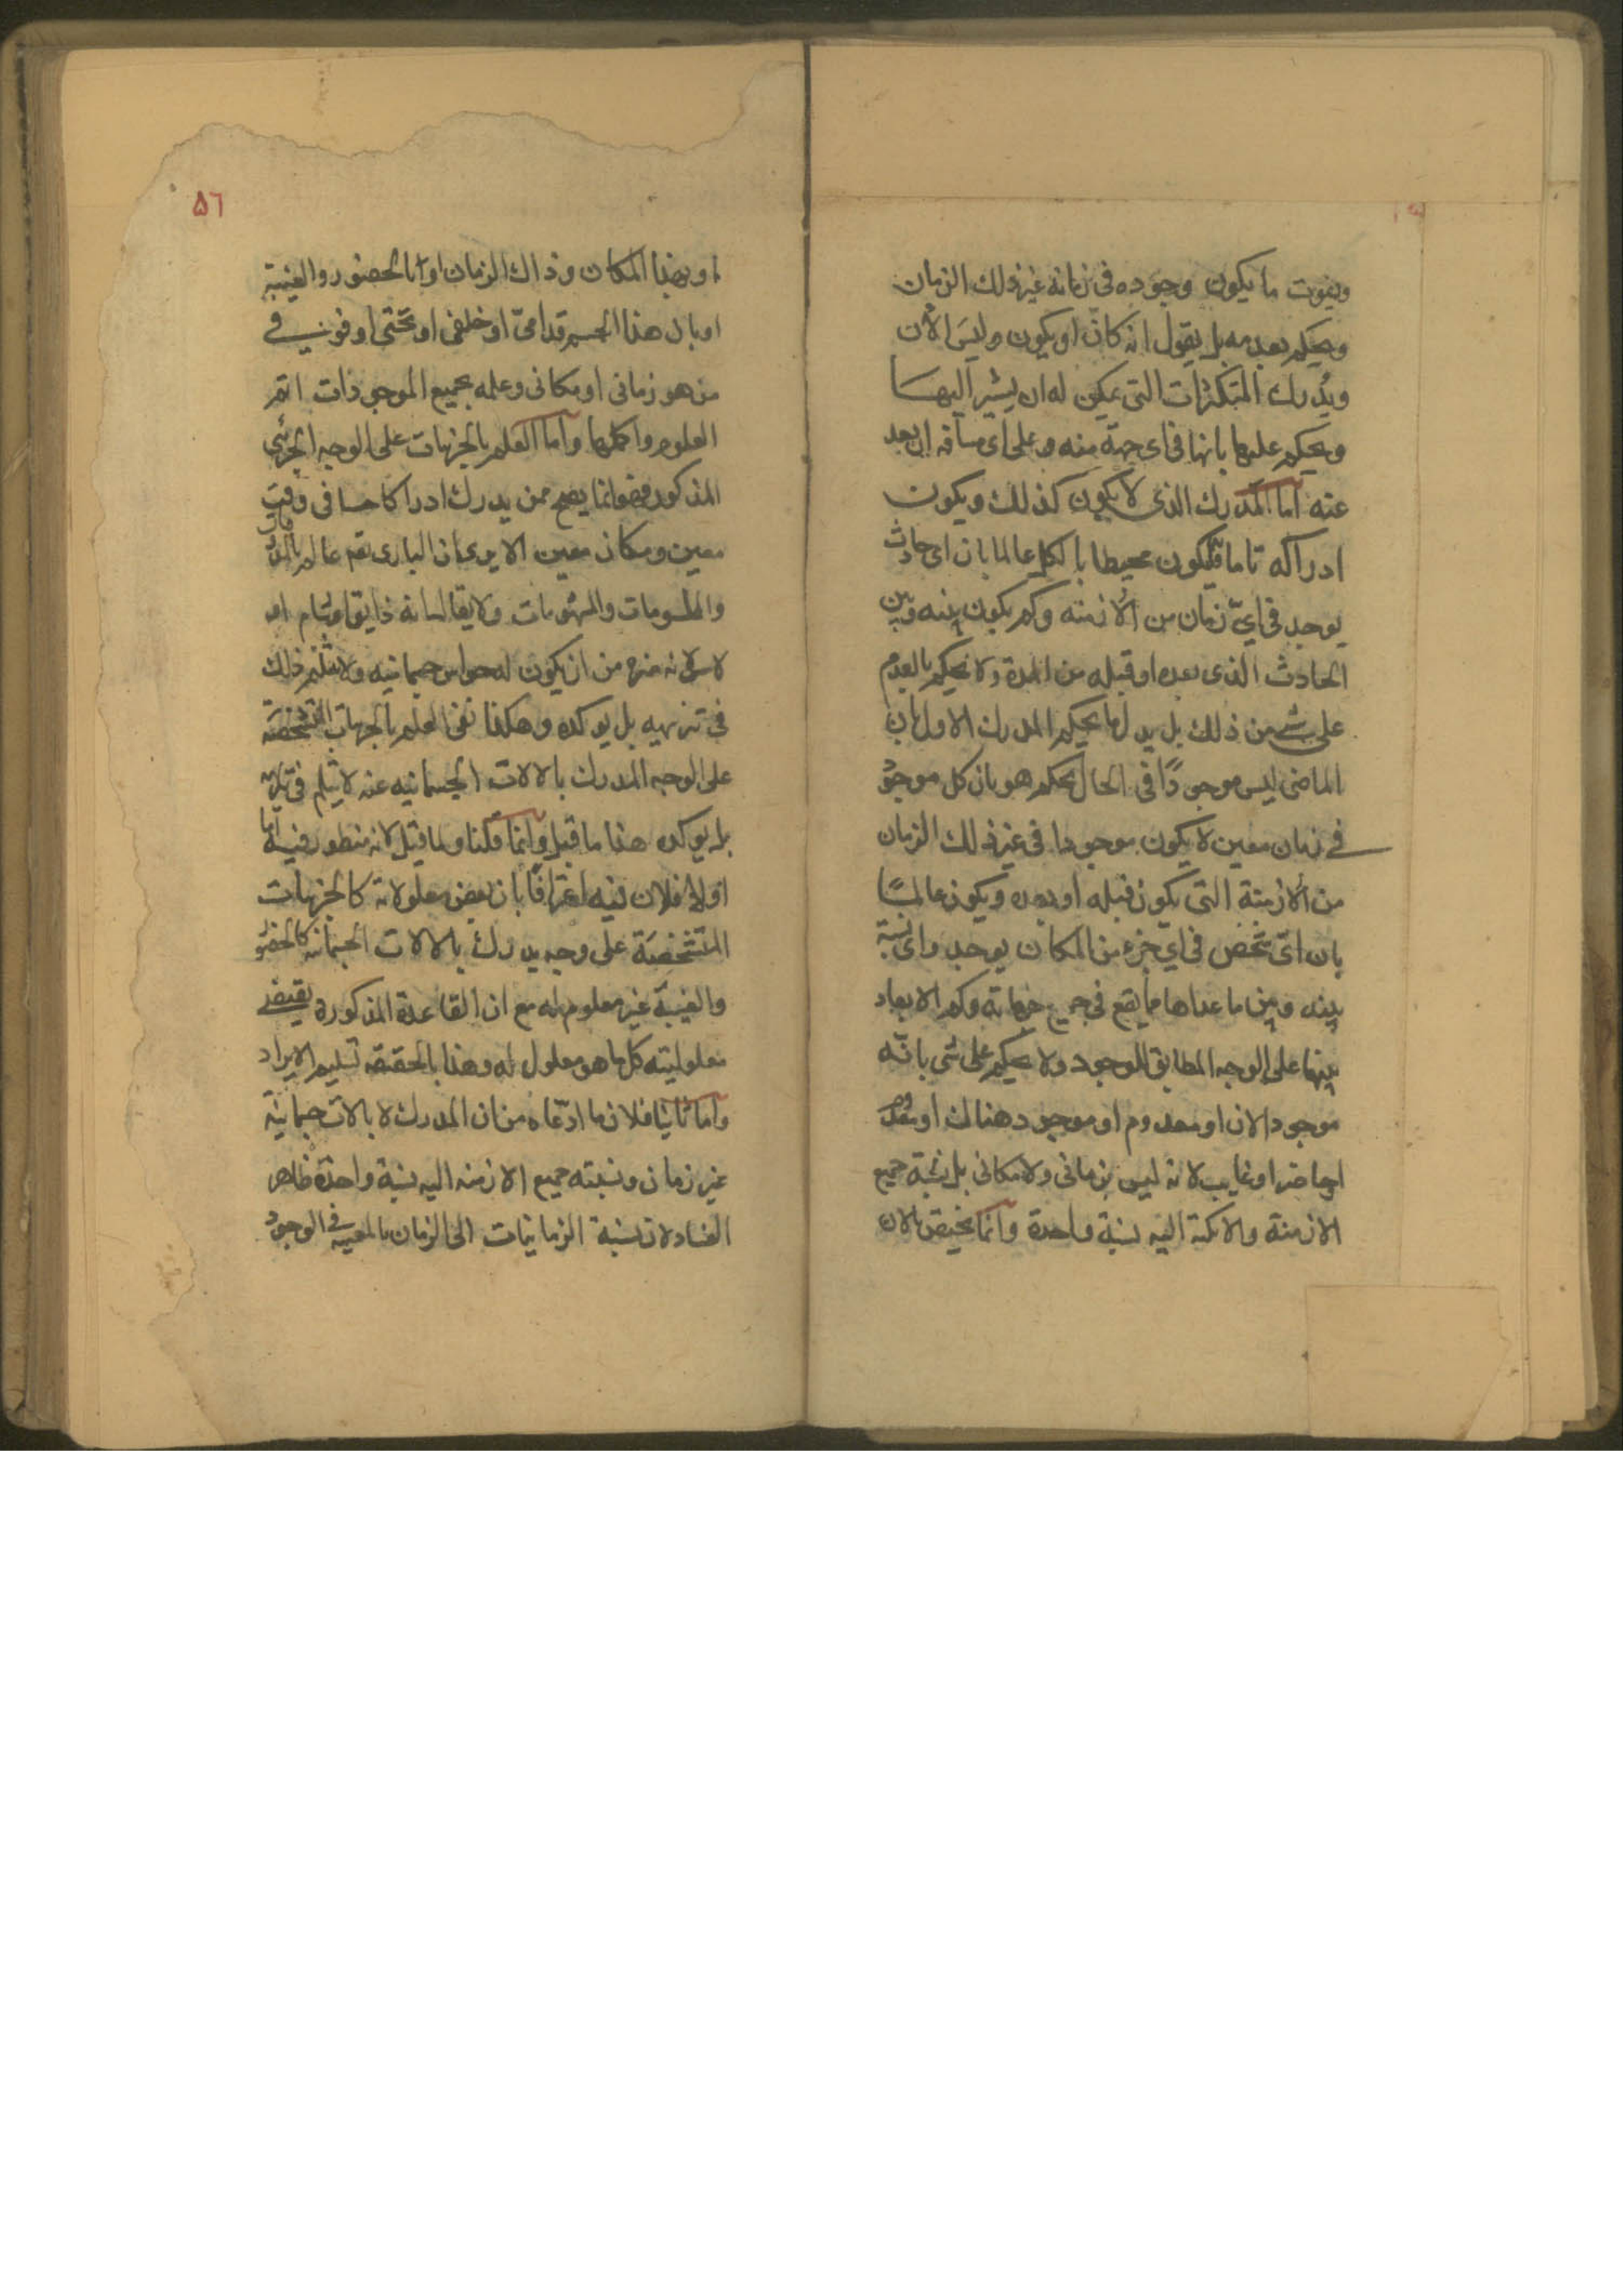 ويفوت ما يكون وجوده فى زمانه غير ذلك الزمان
ويحكم بعدمه بل يقول انه كان او يكون وليس الآن
ويدرك المتكثرات التى يمكن له ان يشير اليها
ويحكم عليها بانها فى اى جهة منه وعلى اى مسافة ان بعد
عنه اما المدرك الذى لا يكون كذلك ويكون
ادراكه تاما فيكون محيطا بالكل عالما بان اى حادث
يوجد فى اىّ زمان من الازمنه وكم يكون بينه وبين
الحادث الذى بعده او قبله من المدة ولا يحكم بالعدم
على شئ من ذلك بل بدل ما يحكم المدرك الاول بان
الماضى ليس موجودًا فى الحال يحكم هو بان كل موجود
فى زمان معين لا يكون موجودا فى غير ذلك الزمان
من الازمنة التى يكون قبله او بعده ويكون عالمًا
بان اىّ شخص فى اىّ جزء من المكان يوجد واى نسبة
بينه وبين ما عداها مما يقع فى جميع جهاته وكم الابعاد
بينهما على الوجه المطابق للوجود ولا يحكم على شى بانّه
موجود الان او معدوم او موجود هناك او معدوم
او حاضر او غايب لانه ليس بزمانى ولا مكانى بل نسبة جميع
الازمنة والامكنة اليه نسبة واحدة وانما يختص بالان
او بهذا المكان وذاك الزمان او بالحضور والغيبة
او بان هذا الجسم قدامىّ او خلفى او تحتى او فوقى
من هو زمانى او مكانى وعلمه بجميع الموجودات اتم
العلوم واكملها واما العلم بالجزئيات على الوجه الجزئى
المذكور فهو انما يصح ممن يدرك ادراكا حسا فى وقت
معين ومكان معين الا يرى ان البارى تع عالم بالمذوقات
والملموسات والمشمومات ولا يقال انه ذايق او شام او
لامس لانه منزه من ان يكون له حواس جسمانيه ولا يثلم ذلك
فى تنزيهه بل يوكده وهكذا نفى العلم بالجهات المتشخصة
على الوجه المدرك بالالات الجسمانيه عنه لا يثلم فى تنزيهه
بل يوكده هذا ما قيل وانما قلنا ولما قيل لانه منظور فيه اما
اولا فلان فيه اعترافًا بان بعض معلولاته كالجزئيات
المتشخصة على وجه يدرك بالالات الجسمانيه كالحضور
والغيبة غير معلوم له مع ان القاعدة المذكورة يقتضى
معلوليته كل ما هو معلول له وهذا بالحقيقه تسليم الايراد
واما ثانيا فلان ما ادّعاه من ان المدرك لا بالات جسمانية
غير زمان ونسبته جميع الازمنه اليه نسبة واحدة ظاهر
الفساد لان نسبة الزمانيات الى الزمان بالمعيه فى الوجود
٥٦